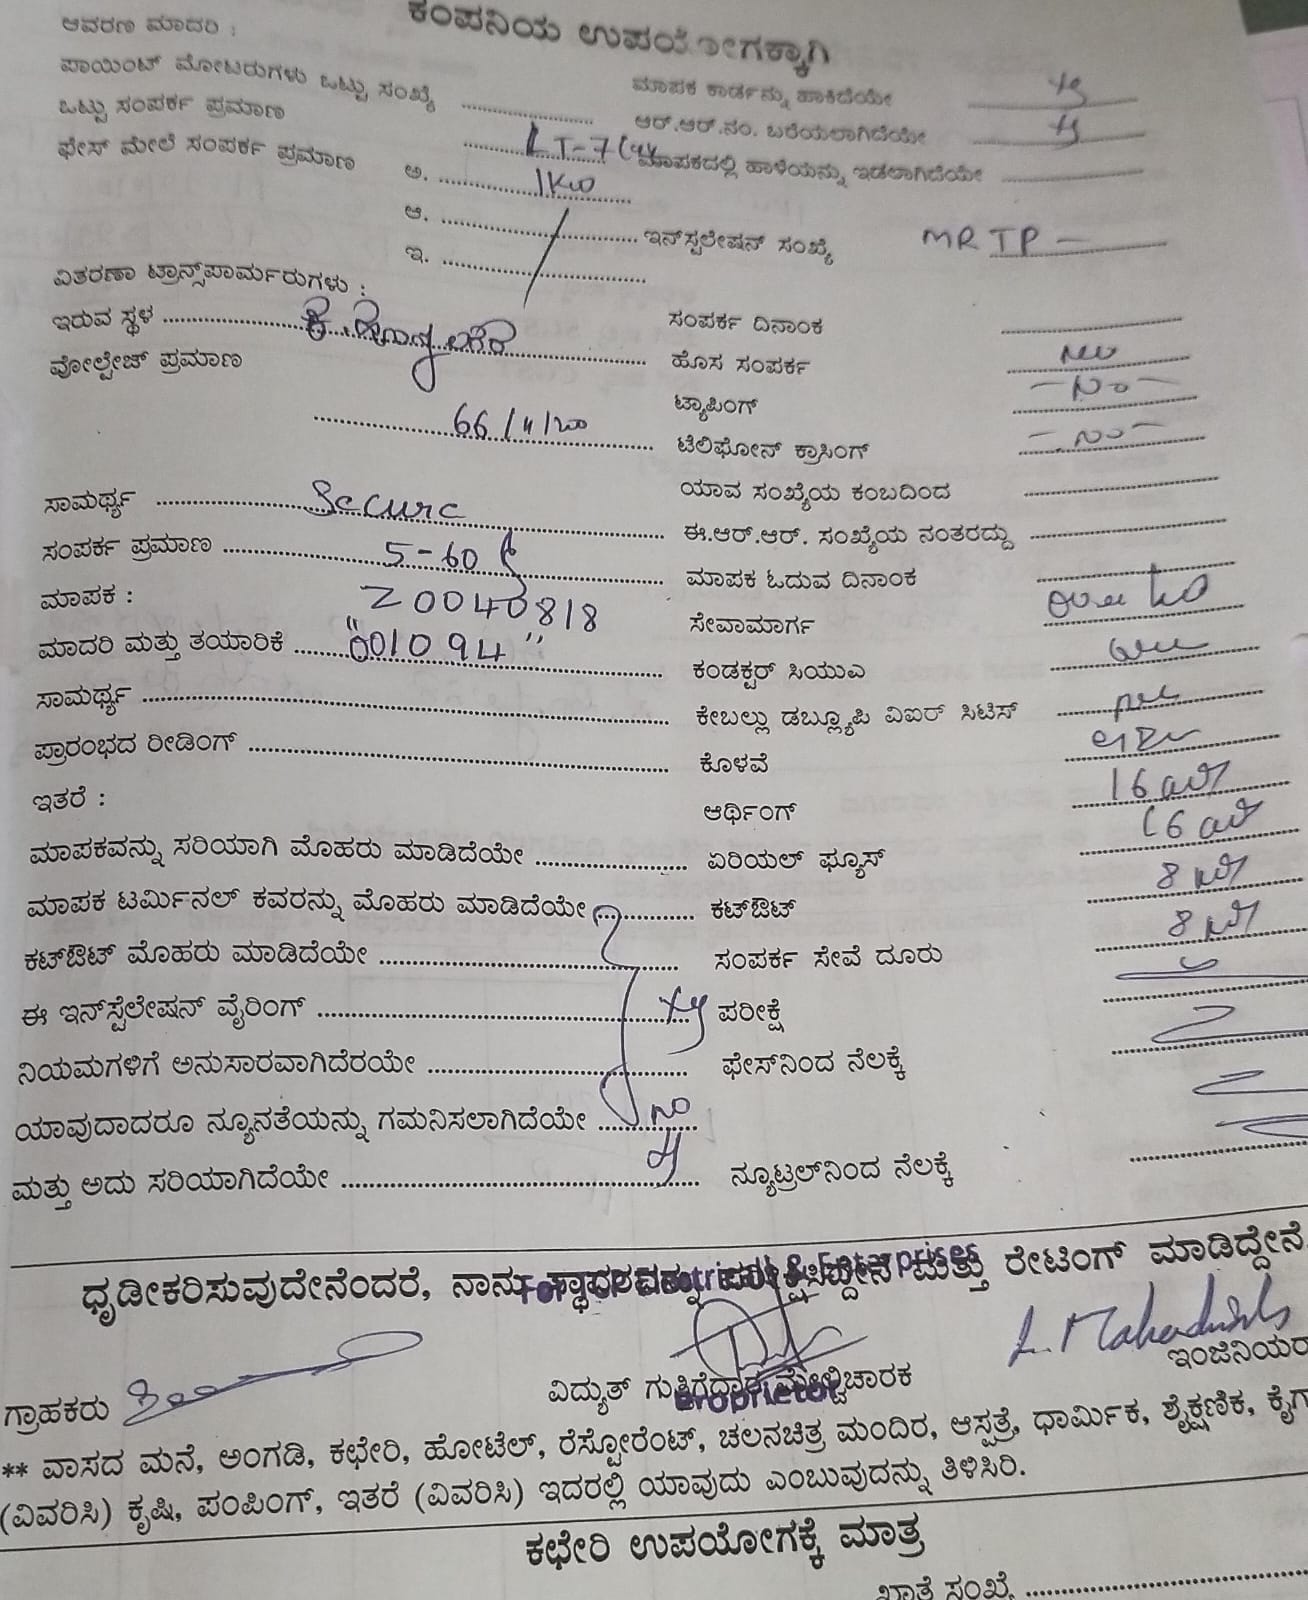 ಕಂಪನಿಯ ಉಪಯೋಗಕ್ಕಾಗಿ
ಆವರಣ ಮಾದರಿ :
ಪಾಯಿಂಟ್ ಮೋಟರುಗಳು ಒಟ್ಟು ಸಂಖ್ಯೆ
ಒಟ್ಟು ಸಂಪರ್ಕ ಪ್ರಮಾಣ LT-7
ಫೇಸ್ ಮೇಲೆ ಸಂಪರ್ಕ ಪ್ರಮಾಣ ಅ. 1KW
ಆ.
ಇ.
ವಿತರಣಾ ಟ್ರಾನ್ಸ್‌ಪಾರ್ಮರುಗಳು :
ಇರುವ ಸ್ಥಳ
ವೋಲ್ಟೇಜ್ ಪ್ರಮಾಣ
66/11/200
ಸಾಮರ್ಥ್ಯ Secure
ಸಂಪರ್ಕ ಪ್ರಮಾಣ 5-60
ಮಾಪಕ : Z0040818
ಮಾದರಿ ಮತ್ತು ತಯಾರಿಕೆ "001094"
ಸಾಮರ್ಥ್ಯ
ಪ್ರಾರಂಭದ ರೀಡಿಂಗ್
ಇತರೆ :
ಮಾಪಕವನ್ನು ಸರಿಯಾಗಿ ಮೊಹರು ಮಾಡಿದೆಯೇ
ಮಾಪಕ ಟರ್ಮಿನಲ್ ಕವರನ್ನು ಮೊಹರು ಮಾಡಿದೆಯೇ
ಕಟ್‌ಔಟ್ ಮೊಹರು ಮಾಡಿದೆಯೇ
ಈ ಇನ್‌ಸ್ಟೆಲೇಷನ್ ವೈರಿಂಗ್
ನಿಯಮಗಳಿಗೆ ಅನುಸಾರವಾಗಿದೆರಯೇ
ಯಾವುದಾದರೂ ನ್ಯೂನತೆಯನ್ನು ಗಮನಿಸಲಾಗಿದೆಯೇ no
ಮತ್ತು ಅದು ಸರಿಯಾಗಿದೆಯೇ
ಮಾಪಕ ಕಾರ್ಡನ್ನು ಹಾಕಿದೆಯೇ
ಆರ್.ಆರ್.ನಂ. ಬರೆಯಲಾಗಿದೆಯೇ
ಮಾಪಕದಲ್ಲಿ ಹಾಳೆಯನ್ನು ಇಡಲಾಗಿದೆಯೇ
ಇನ್‌ಸ್ಟಲೇಷನ್ ಸಂಖ್ಯೆ MRTP —
ಸಂಪರ್ಕ ದಿನಾಂಕ
ಹೊಸ ಸಂಪರ್ಕ New
ಟ್ಯಾಪಿಂಗ್ — No —
ಟೆಲಿಫೋನ್ ಕ್ರಾಸಿಂಗ್ — No —
ಯಾವ ಸಂಖ್ಯೆಯ ಕಂಬದಿಂದ
ಈ.ಆರ್.ಆರ್. ಸಂಖ್ಯೆಯ ನಂತರದ್ದು
ಮಾಪಕ ಓದುವ ದಿನಾಂಕ
ಸೇವಾಮಾರ್ಗ
ಕಂಡಕ್ಟರ್ ಸಿಯುಎ
ಕೇಬಲ್ಲು ಡಬ್ಲ್ಯೂಪಿ ವಿಐರ್ ಸಿಟಿಸ್
ಕೊಳವೆ
ಆರ್ಥಿಂಗ್ 16
ಏರಿಯಲ್ ಫ್ಯೂಸ್ 16
ಕಟ್‌ಔಟ್ 8
ಸಂಪರ್ಕ ಸೇವೆ ದೂರು 8
ಪರೀಕ್ಷೆ
ಫೇಸ್‌ನಿಂದ ನೆಲಕ್ಕೆ
ನ್ಯೂಟ್ರಲ್‌ನಿಂದ ನೆಲಕ್ಕೆ
ಧೃಡೀಕರಿಸುವುದೇನೆಂದರೆ, ನಾನು ಸ್ಥಾವರವನ್ನು ಪರೀಕ್ಷಿಸಿದ್ದೇನೆ ಮತ್ತು ರೇಟಿಂಗ್ ಮಾಡಿದ್ದೇನೆ
Enterprises
Proprietor
ಗ್ರಾಹಕರು
ವಿದ್ಯುತ್ ಗುತ್ತಿಗೆದಾರ ಮೇಲ್ವಿಚಾರಕ
ಇಂಜಿನಿಯರ
** ವಾಸದ ಮನೆ, ಅಂಗಡಿ, ಕಛೇರಿ, ಹೋಟೆಲ್, ರೆಸ್ಟೋರೆಂಟ್, ಚಲನಚಿತ್ರ ಮಂದಿರ, ಆಸ್ಪತ್ರೆ, ಧಾರ್ಮಿಕ, ಶೈಕ್ಷಣಿಕ, ಕೈಗಾ
(ವಿವರಿಸಿ) ಕೃಷಿ, ಪಂಪಿಂಗ್, ಇತರೆ (ವಿವರಿಸಿ) ಇದರಲ್ಲಿ ಯಾವುದು ಎಂಬುವುದನ್ನು ತಿಳಿಸಿರಿ.
ಕಛೇರಿ ಉಪಯೋಗಕ್ಕೆ ಮಾತ್ರ
ಖಾತೆ ಸಂಖ್ಯೆ